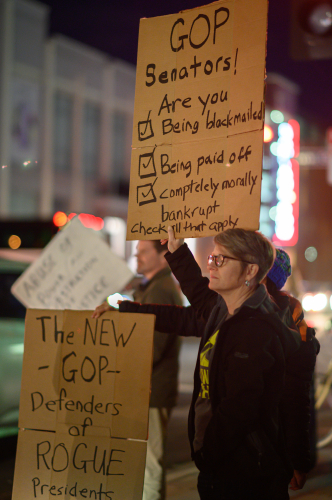 GOP
Senators!
Are you
☑ Being blackmailed
☑ Being paid off
☑ completely morally
bankrupt
check all that apply
The NEW
- GOP -
Defenders
of
ROGUE
Presidents
ABUSE OF
JUSTICE